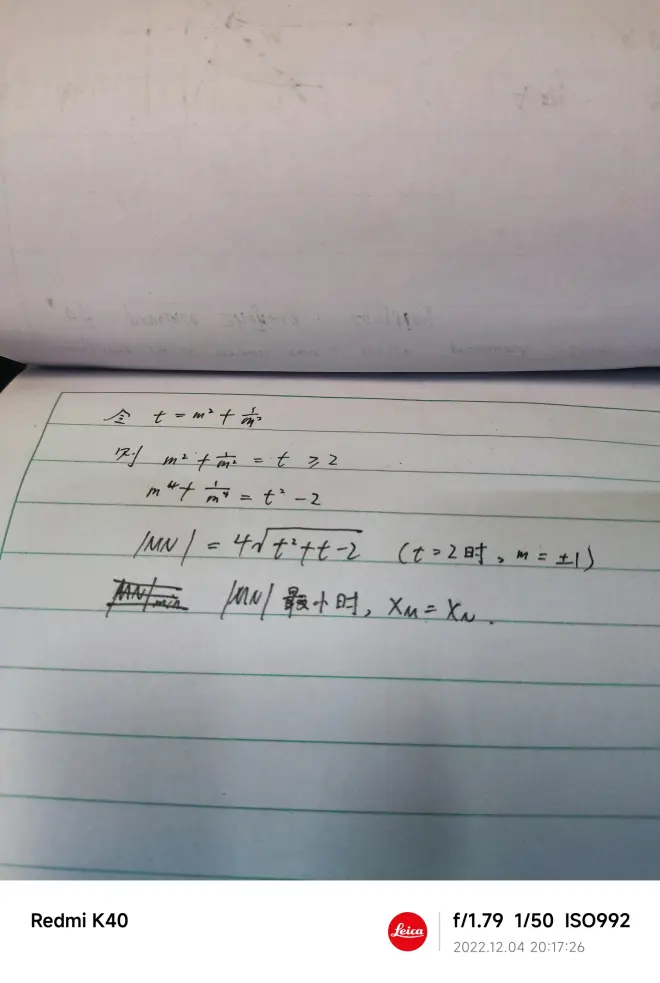 令 t = m² + 1/m²
则 m² + 1/m² = t ≥ 2
m⁴ + 1/m⁴ = t² - 2
|MN| = 4√(t²+t-2) (t=2时, m=±1)
|MN| 最小时, X_M = X_N.
Redmi K40
Leica
f/1.79 1/50 ISO992
2022.12.04 20:17:26